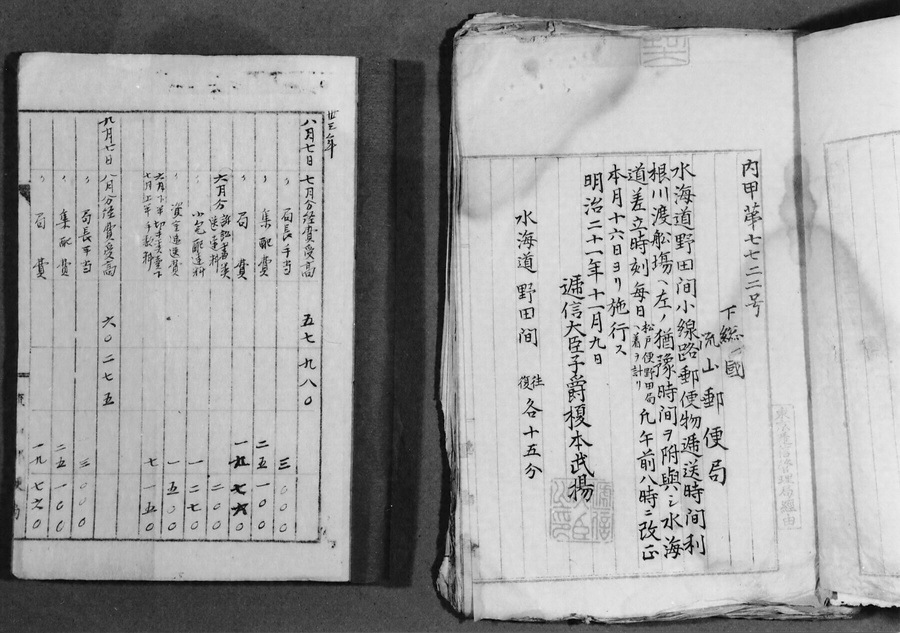 内甲第七七二二号
下総国
流山郵便局
水海道野田间小線路郵便物逓送時間利
根川渡船場ヘ左ノ猶豫時间ヲ附與シ水海
道差立時刻毎日松戸便野田局ヘ着ヲ計リ凡午前八時ニ改正
本月十六日ヨリ施行ス
明治二十一年十一月九日
逓信大臣子爵榎本武揚
水海道野田间 往復各十五分
東京逓信管理局経由
卅三年
八月七日 七月分経費受高 五七九八〇
〃 局長手当 三〇〇〇
〃 集配費 二五一〇〇
〃 局費 一九七六〇
六月分 送達料 二〇〇
〃 小包配達料 一二七〇
〃 一五〇〇
六月下半 七月上半 手数料 七一五〇
九月七日 八月分経費受高 六〇二七五
〃 局長手当 三〇〇〇
〃 集配費 二五一〇〇
〃 局費 一九七六〇